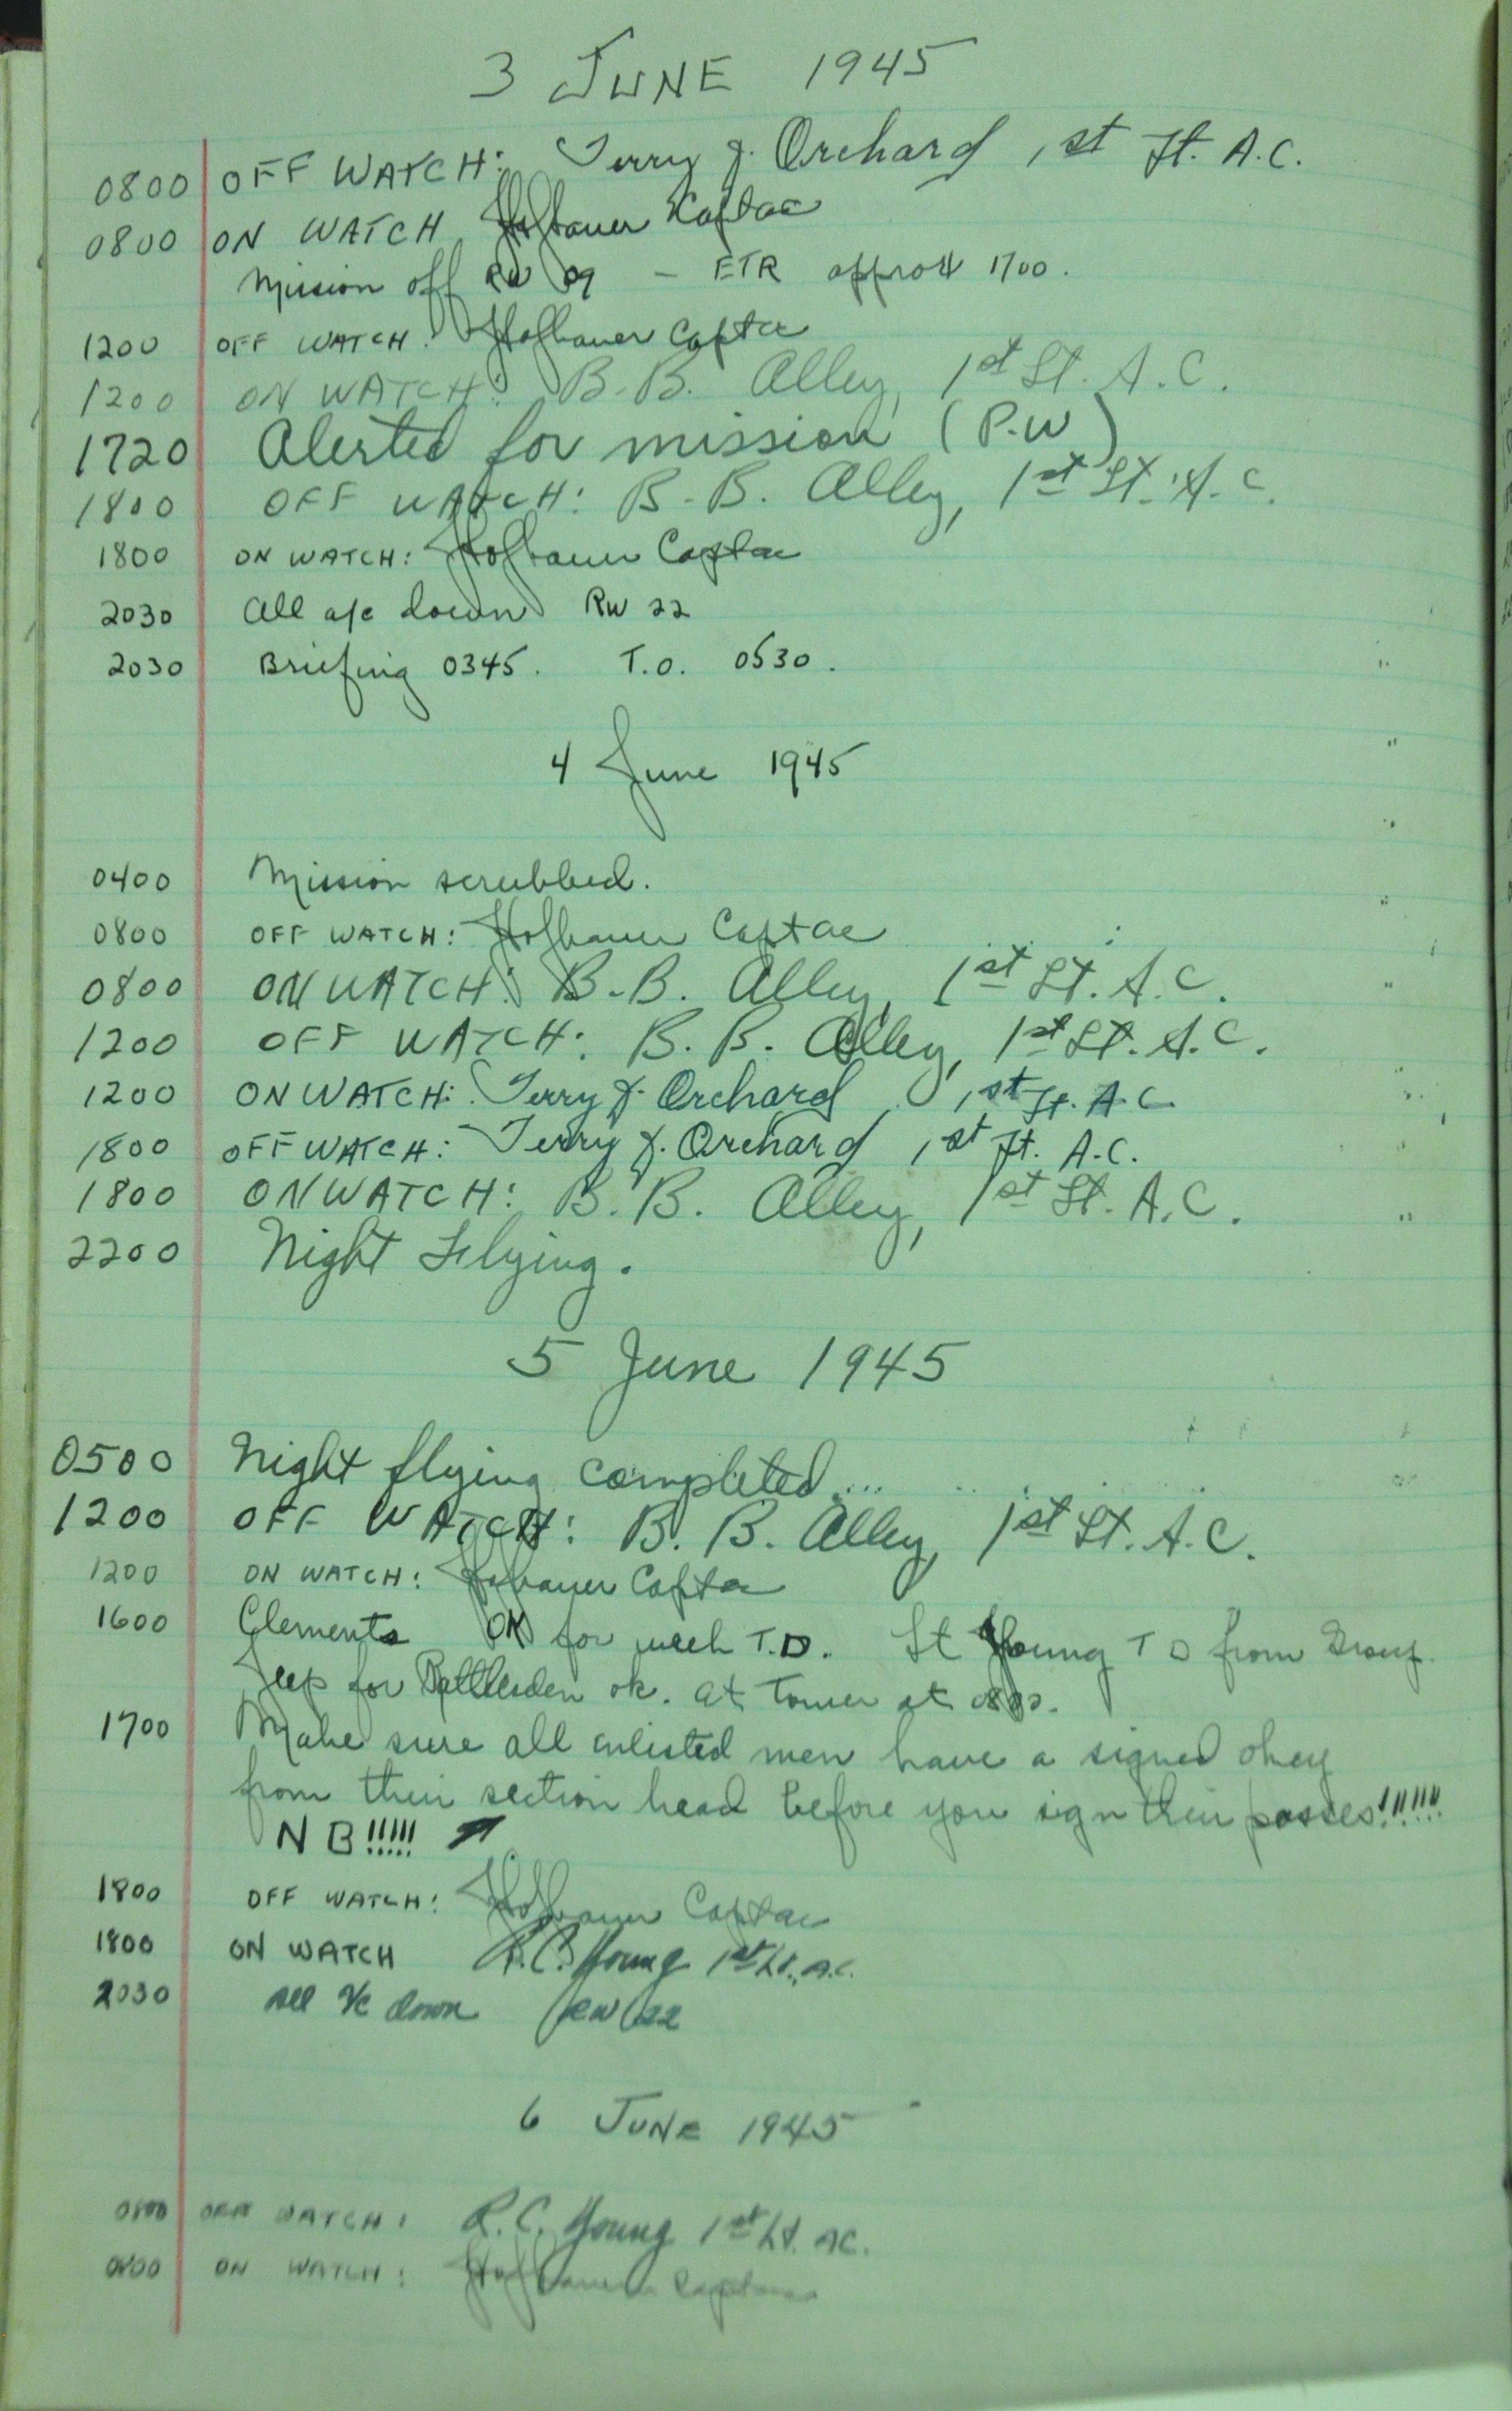 3 JUNE 1945
0800 OFF WATCH: Terry J. Orchard 1st Lt. A.C.
0800 ON WATCH Hofbauer Capt ac
Mission off RW 09 - ETR approx 1700.
1200 OFF WATCH: Hofbauer Capt ac
1200 ON WATCH: B.B. Alley, 1st Lt. A.C.
1720 Alerted for mission (P.W)
1800 OFF WATCH: B.B. Alley, 1st Lt. A.C.
1800 ON WATCH: Hofbauer Capt ac
2030 All a/c down RW 22
2030 Briefing 0345. T.O. 0530.
4 June 1945
0400 Mission scrubbed.
0800 OFF WATCH: Hofbauer Capt ac
0800 ON WATCH: B.B. Alley, 1st Lt. A.C.
1200 OFF WATCH: B.B. Alley, 1st Lt. A.C.
1200 ON WATCH: Terry J. Orchard 1st Lt. A.C.
1800 OFF WATCH: Terry J. Orchard 1st Lt. A.C.
1800 ON WATCH: B.B. Alley, 1st Lt. A.C.
2200 Night Flying.
5 June 1945
0500 Night flying completed...
1200 OFF WATCH: B.B. Alley, 1st Lt. A.C.
1200 ON WATCH: Hofbauer Capt ac
1600 Clements OK for week T.D. Lt Young T D from Group.
Jeep for Rattlesden ok. at Tower at 0800.
1700 Make sure all enlisted men have a signed okey
from their section head before you sign their passes!!!!!!
NB!!!!!
1800 OFF WATCH: Hofbauer Capt ac
1800 ON WATCH R.C. Young 1st Lt. A.C.
2030 All a/c down RW 22
6 JUNE 1945
0800 OFF WATCH: R.C. Young 1st Lt. AC.
0800 ON WATCH: Hofbauer Capt ac